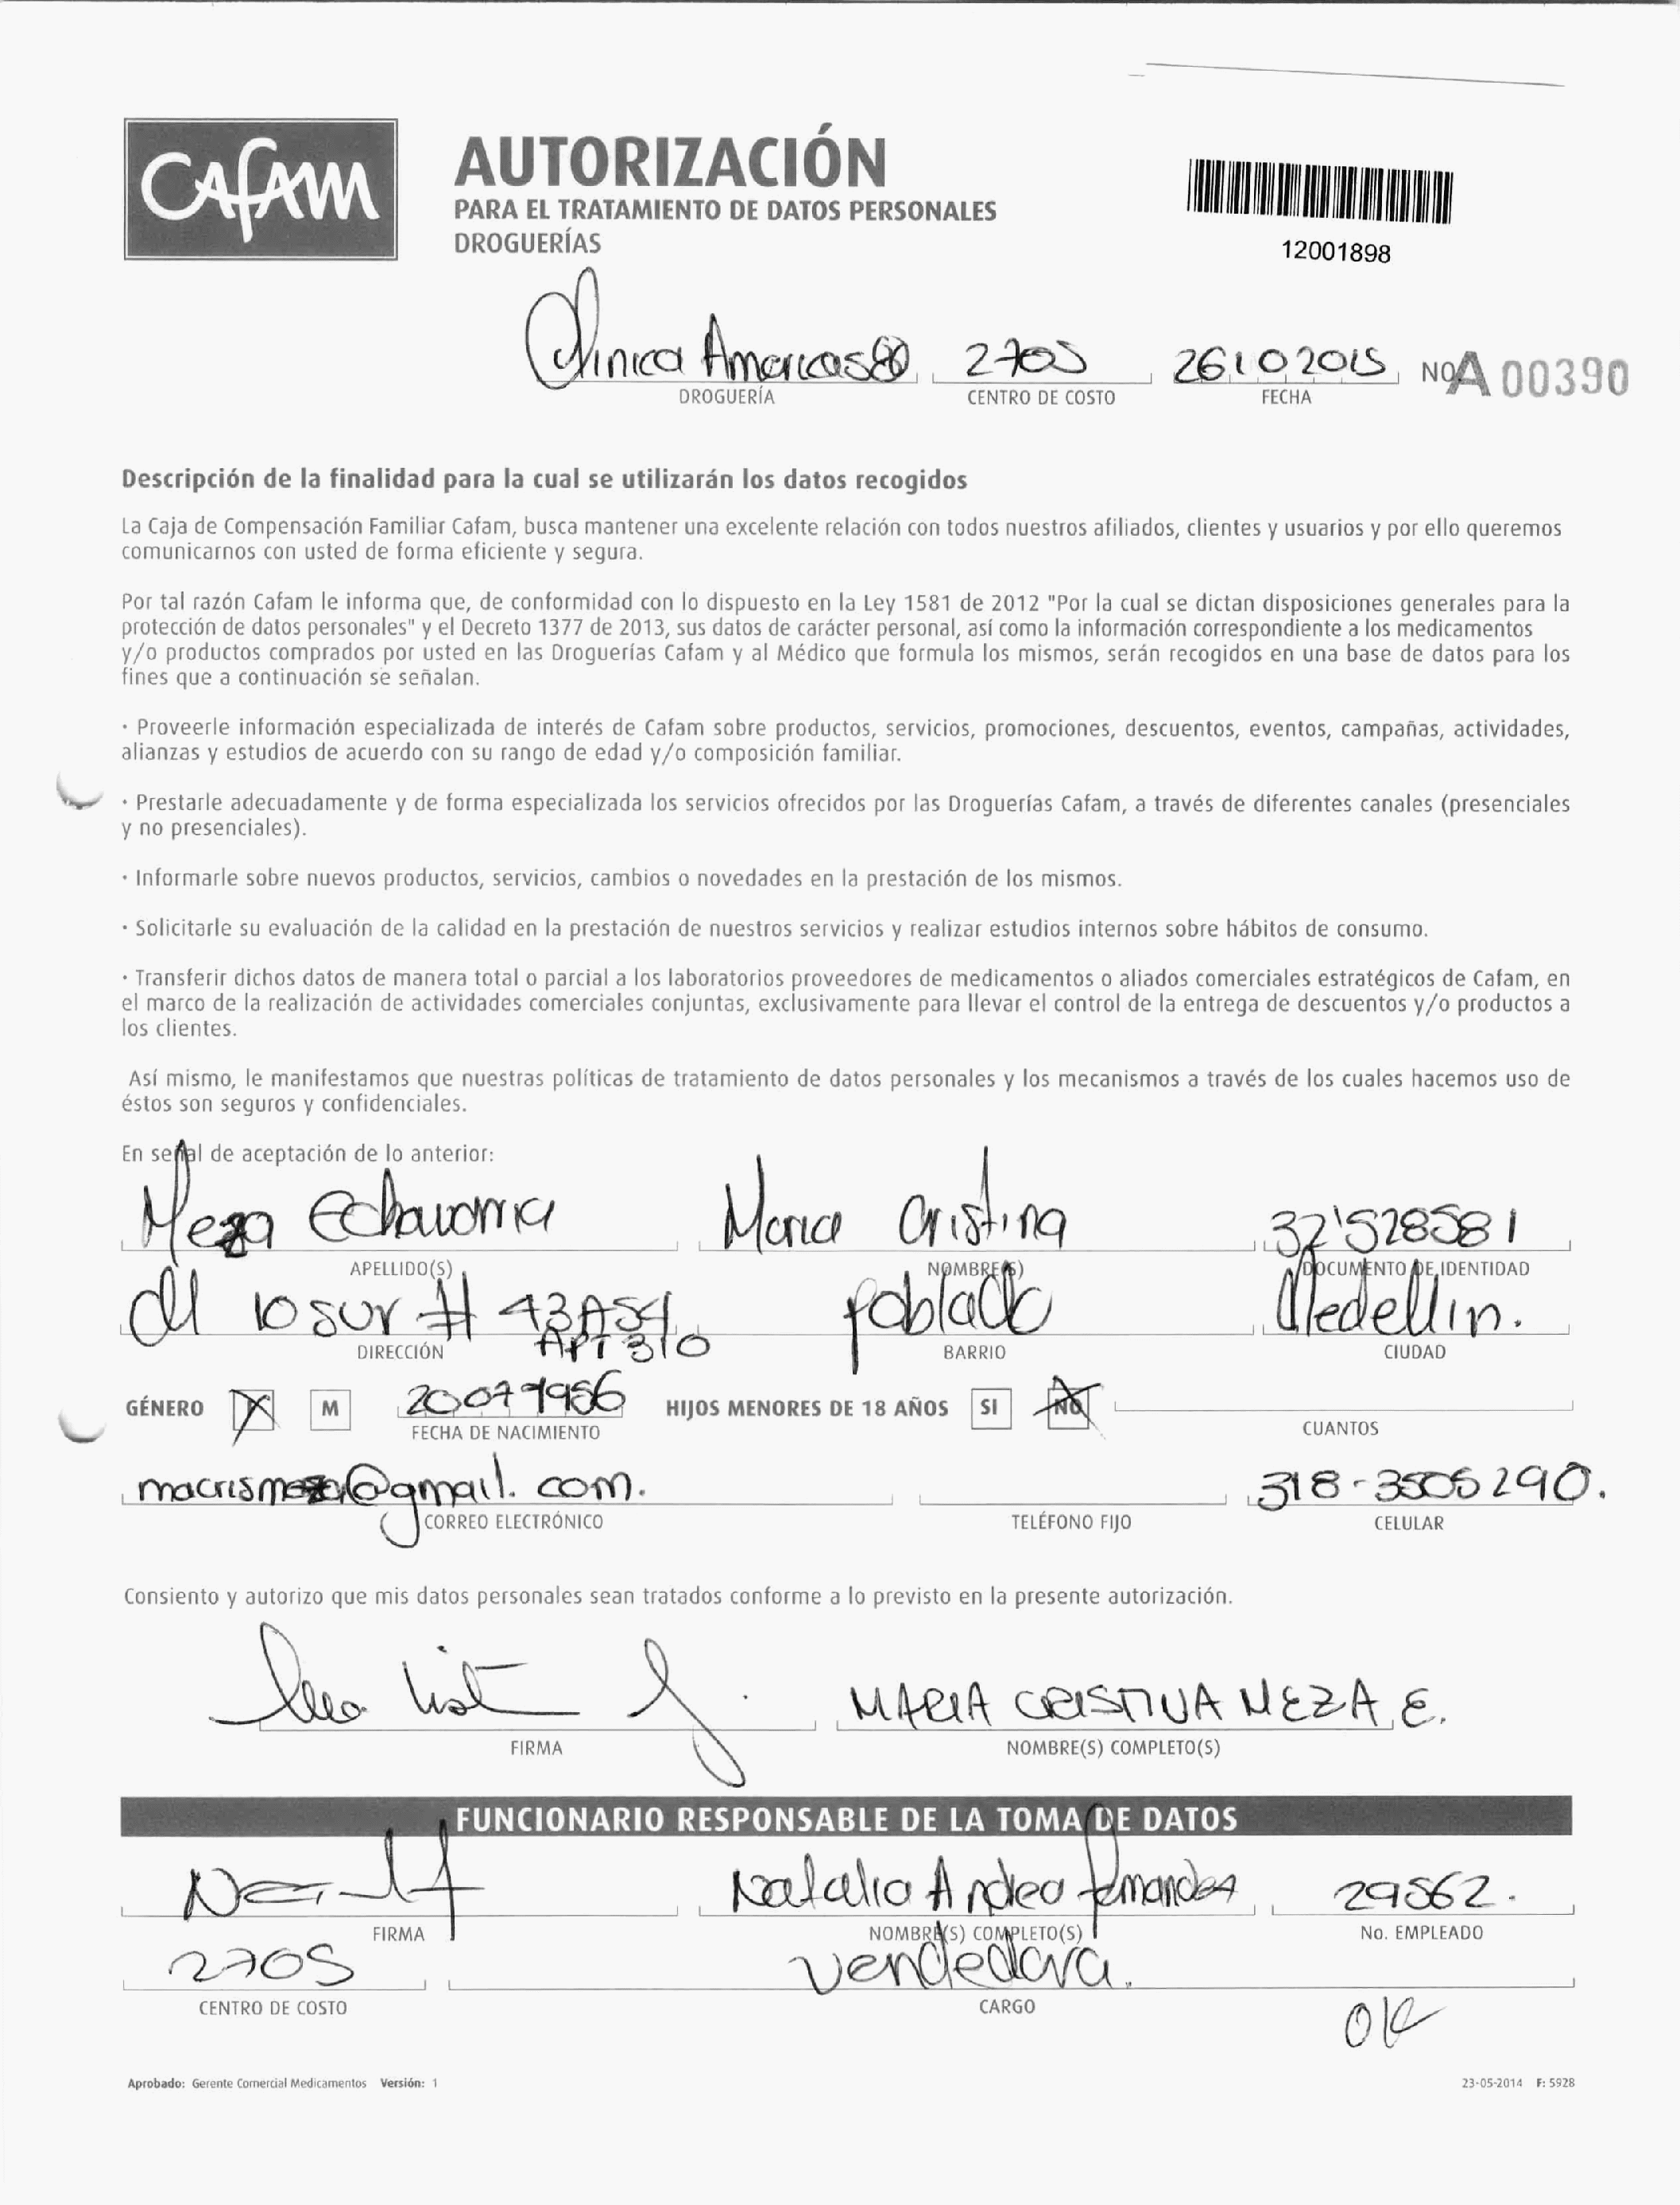 CAFAM
AUTORIZACIÓN
PARA EL TRATAMIENTO DE DATOS PERSONALES
DROGUERÍAS
12001898
Clinica Americas 80 2705 26102015 No A 00390
DROGUERÍA CENTRO DE COSTO FECHA
Descripción de la finalidad para la cual se utilizarán los datos recogidos
La Caja de Compensación Familiar Cafam, busca mantener una excelente relación con todos nuestros afiliados, clientes y usuarios y por ello queremos
comunicarnos con usted de forma eficiente y segura.
Por tal razón Cafam le informa que, de conformidad con lo dispuesto en la Ley 1581 de 2012 "Por la cual se dictan disposiciones generales para la
protección de datos personales" y el Decreto 1377 de 2013, sus datos de carácter personal, así como la información correspondiente a los medicamentos
y/o productos comprados por usted en las Droguerías Cafam y al Médico que formula los mismos, serán recogidos en una base de datos para los
fines que a continuación se señalan.
· Proveerle información especializada de interés de Cafam sobre productos, servicios, promociones, descuentos, eventos, campañas, actividades,
alianzas y estudios de acuerdo con su rango de edad y/o composición familiar.
· Prestarle adecuadamente y de forma especializada los servicios ofrecidos por las Droguerías Cafam, a través de diferentes canales (presenciales
y no presenciales).
· Informarle sobre nuevos productos, servicios, cambios o novedades en la prestación de los mismos.
· Solicitarle su evaluación de la calidad en la prestación de nuestros servicios y realizar estudios internos sobre hábitos de consumo.
· Transferir dichos datos de manera total o parcial a los laboratorios proveedores de medicamentos o aliados comerciales estratégicos de Cafam, en
el marco de la realización de actividades comerciales conjuntas, exclusivamente para llevar el control de la entrega de descuentos y/o productos a
los clientes.
Así mismo, le manifestamos que nuestras políticas de tratamiento de datos personales y los mecanismos a través de los cuales hacemos uso de
éstos son seguros y confidenciales.
En señal de aceptación de lo anterior:
Meza Echavarria Maria Cristina 32'528581
APELLIDO(S) NOMBRE(S) DOCUMENTO DE IDENTIDAD
Cll 10 sur # 43A54 poblado Medellin.
APT 310
DIRECCIÓN BARRIO CIUDAD
GÉNERO M 20071956 HIJOS MENORES DE 18 AÑOS SI NO
FECHA DE NACIMIENTO CUANTOS
macrismeza@gmail.com. 318-3505290.
CORREO ELECTRÓNICO TELÉFONO FIJO CELULAR
Consiento y autorizo que mis datos personales sean tratados conforme a lo previsto en la presente autorización.
MARIA CRISTINA MEZA E.
FIRMA NOMBRE(S) COMPLETO(S)
FUNCIONARIO RESPONSABLE DE LA TOMA DE DATOS
Natalia Andrea fernandez 29562.
FIRMA NOMBRE(S) COMPLETO(S) No. EMPLEADO
2705 vendedora.
CENTRO DE COSTO CARGO
OK
Aprobado: Gerente Comercial Medicamentos Versión: 1 23-05-2014 F: 5928